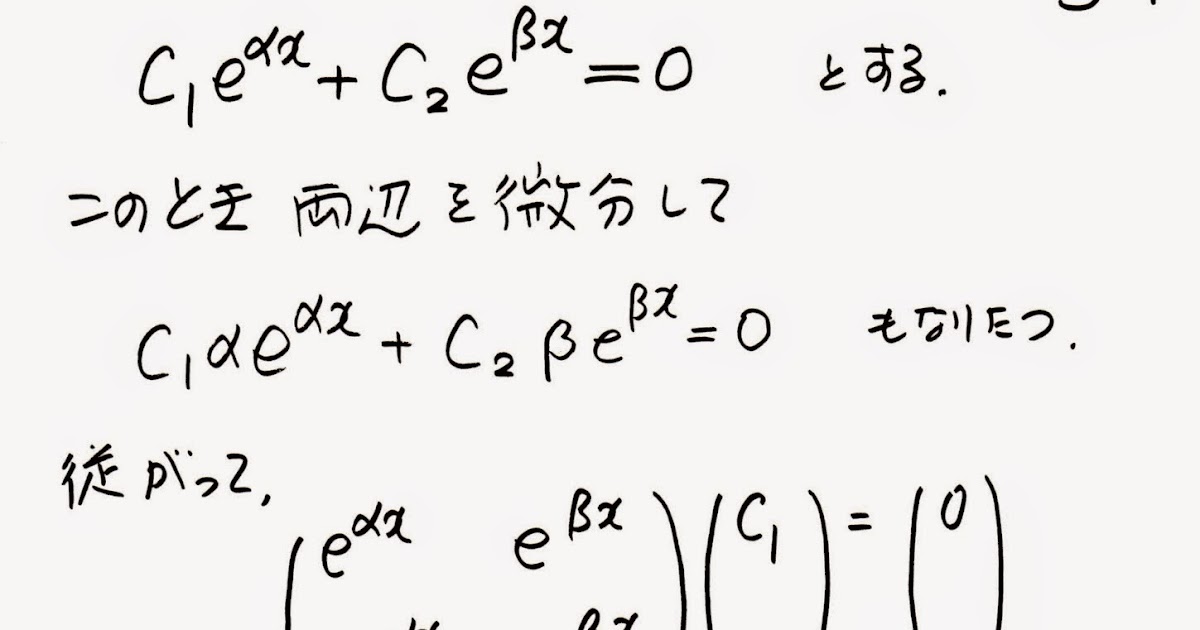 C₁e^{αx} + C₂e^{βx} = 0 とする.
このとき 両辺を微分して
C₁αe^{αx} + C₂βe^{βx} = 0 もなりたつ.
従がって,
( e^{αx} e^{βx} ) ( C₁ ) = ( 0 )